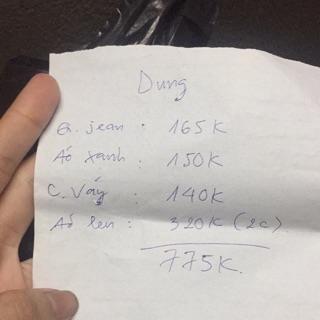 Dung
Q. jean : 165K
Áo xanh : 150K
C. Váy : 140K
Áo len : 320K (2c)
775K.